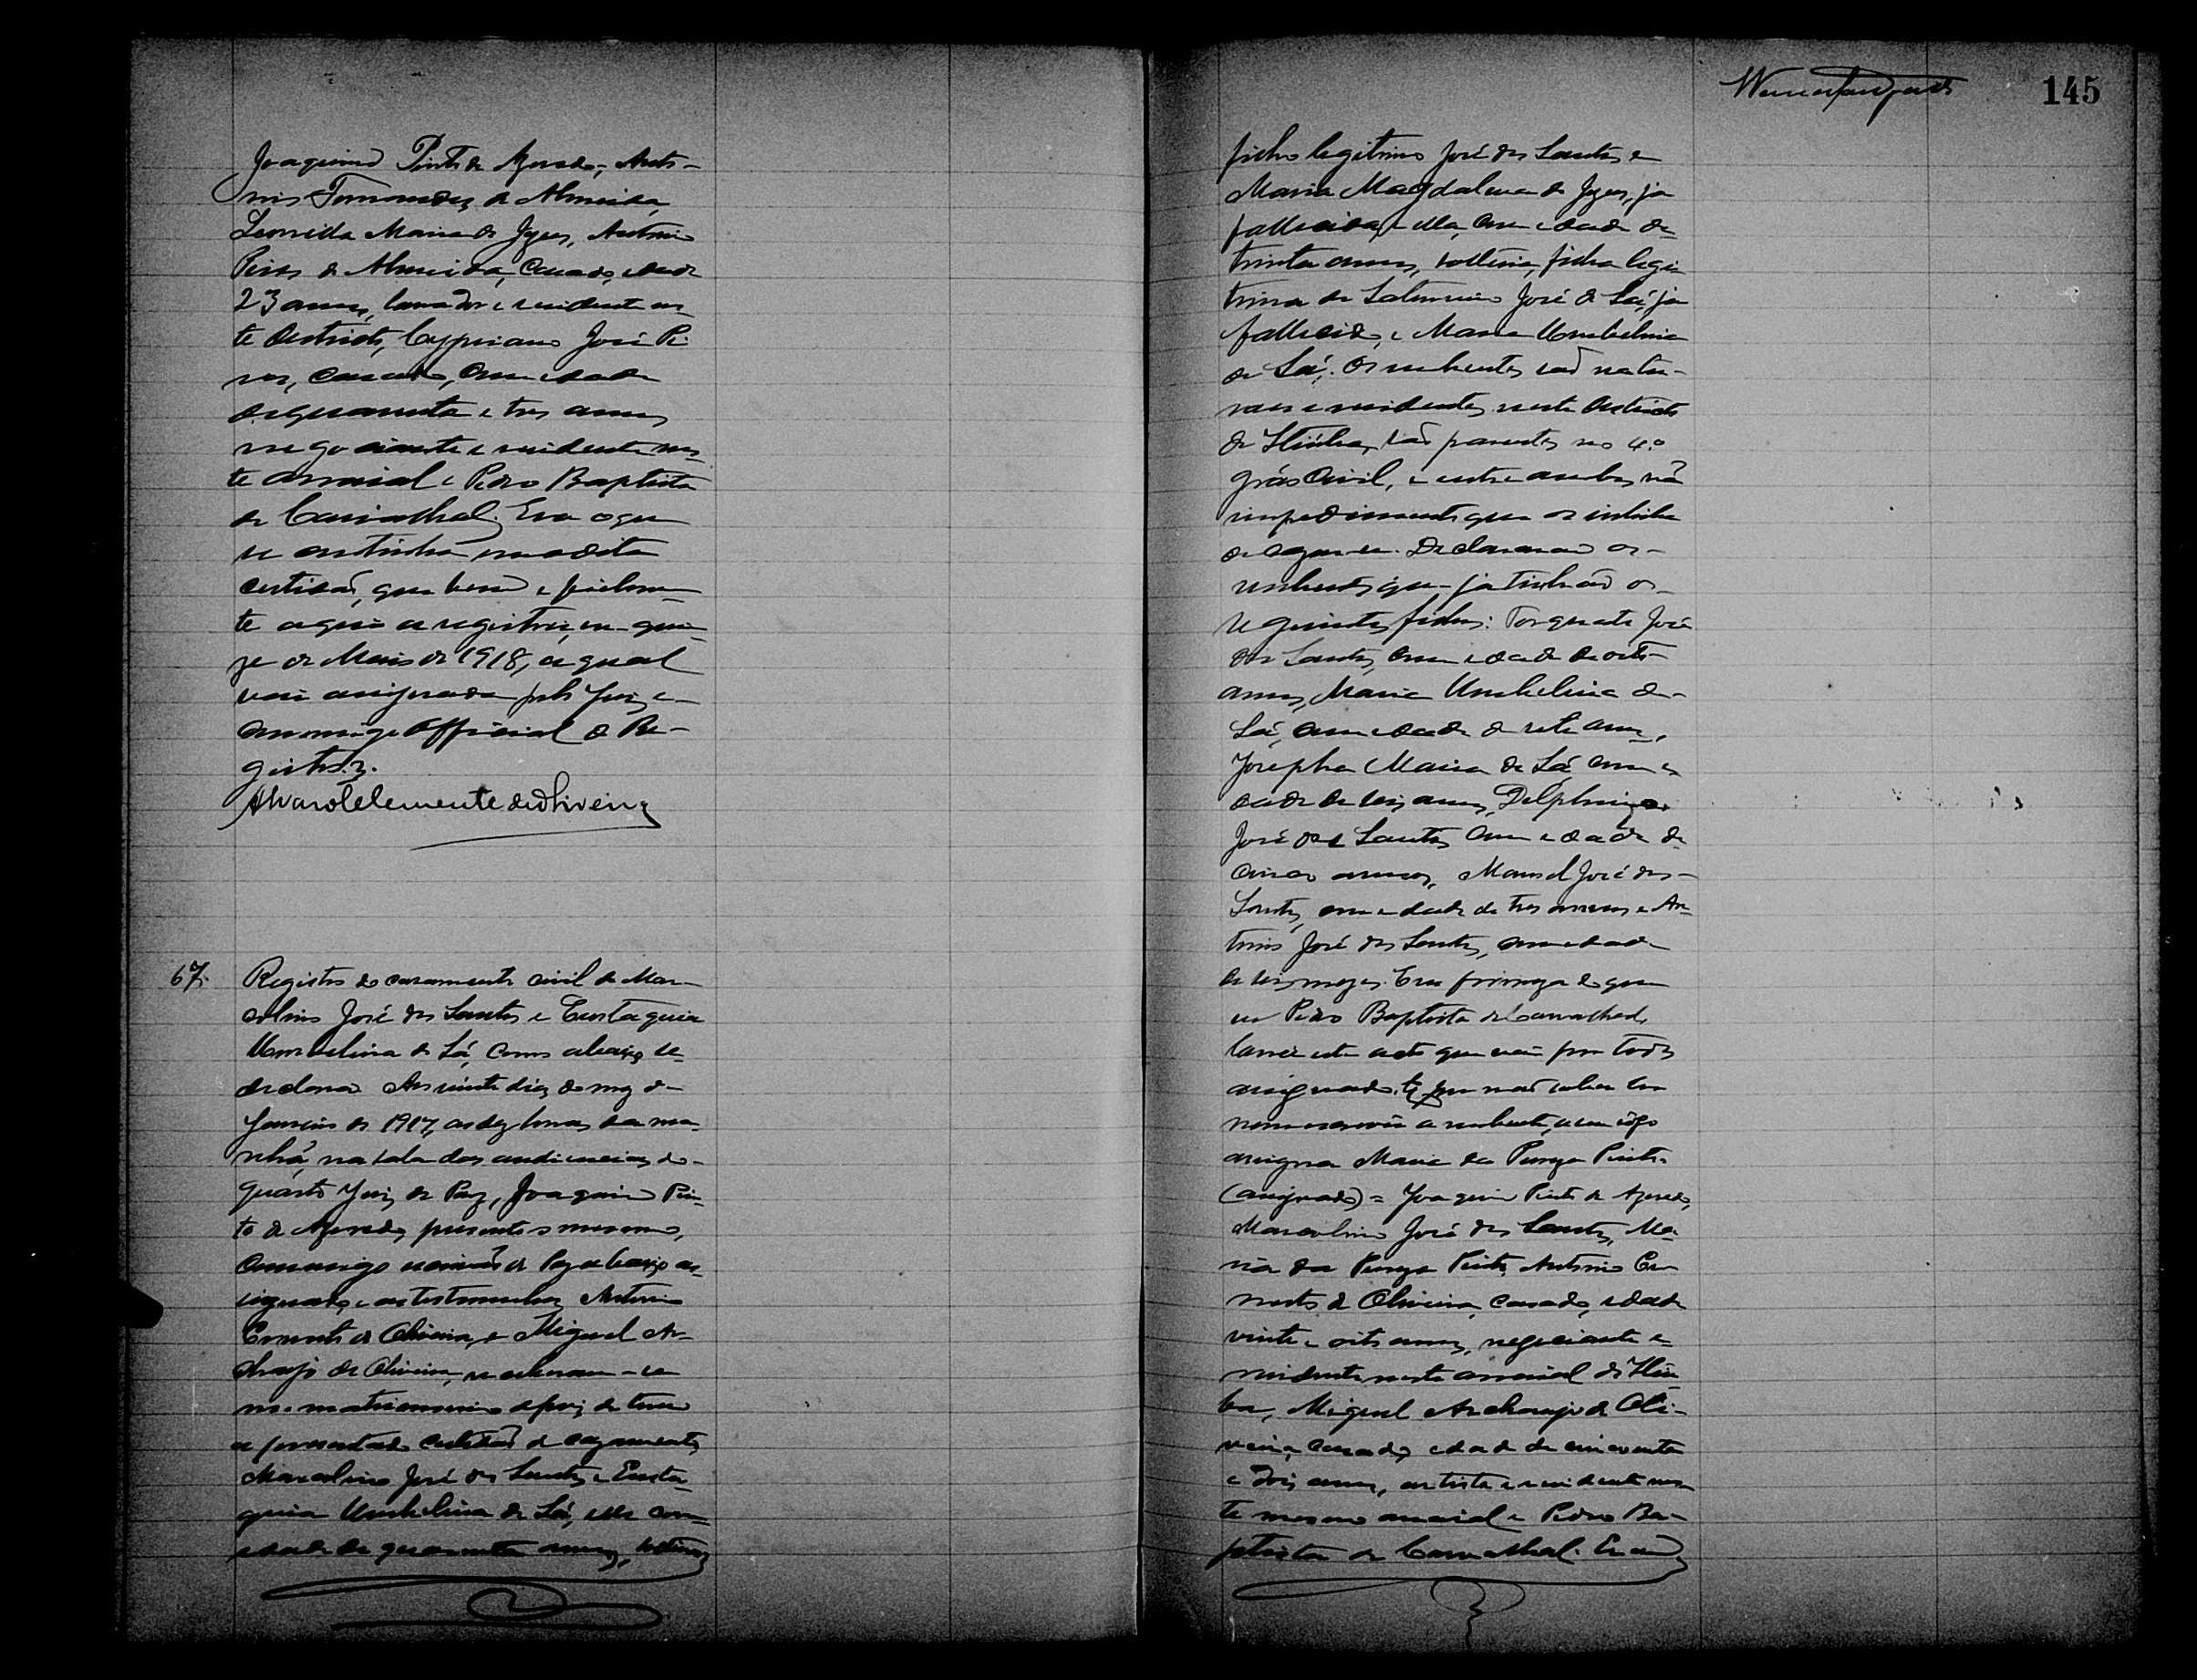 Joaquim Pinto de Azevedo, Anto-
nio Fernandes de Almeida,
Leonida Maria de Jezus, Antonio
Pires de Almeida, casado, edade
23 annos, lavrador e residente nes-
te destricto, Cypriano José Pi-
res, casado, com edade
de quarenta e tres annos
negociante e residente nes-
te arraial e Pedro Baptista
de Carvalhal. Era o que
se continha na dita
certidão, que bem e fielmen-
te aqui a registrei, em quin-
ze de Maio de 1918, a qual
vai assignada pelo Juiz e
commigo Official do Re-
gistro.
Alvaro Clemente de Oliveira
67. Registro do casamento civil de Mar-
colino José dos Santos e Eustaquia
Umbelina de Sá, como abaixo se
declara. Aos vinte dias do mez de
Janeiro de 1917, as dez horas da ma-
nhã, na sala das audiencias do
quarto Juiz de Paz, Joaquim Pin-
to de Azevedo, presente o mesmo,
commigo escrivão de Paz abaixo as-
signado, e as testemunhas Antonio
Ernesto de Oliveira, e Miguel Ar-
chanjo de Oliveira, receberam-se
no matrimonio depois de terem
apresentado certidão de cazamento,
Marcolino José dos Santos e Eusta-
quia Umbelina de Sá, elle com
edade de quarenta annos, solteiro,
145
filho legitimo José dos Santos e
Maria Magdalena de Jezus, ja
fallecida, e ella, com edade de
trinta annos, solteira, filha legi-
tima de Saturnino José de Sá, ja
fallecido, e Maria Umbelina
de Sá. Os nubentes são natu-
raes e residentes neste destricto
de são parentes no 4º
gráo civil, e entre ambos não
impedimento que os inhiba
de cazar-se. Declararam os
nubentes que ja tinhão os
seguintes filhos: Torquato José
dos Santos, com edade de oito
annos, Maria Umbelina de
Sá, com edade de sete annos,
Josepha Maria de Sá, com e-
dade de seis annos, Delphino
José dos Santos com edade de
cinco annos, Manoel José dos
Santos, com edade de tres annos e An-
tonio José dos Santos, com edade
de seis mezes. Em firmeza do que
eu Pedro Baptista de Carvalhal,
lavrei este acto que vai por todos
assignado, e por não saber ler
nem escrever a nubente, a seu rogo
assigna Maria da Pureza Pinto.
(assignado) = Joaquim Pinto de Azevedo,
Marcolino José dos Santos, Ma-
ria da Pureza Pinto, Antonio Er-
nesto de Oliveira, casado, edade
vinte e oito annos, negociante e
residente neste arraial de
Miguel Archanjo de Oli-
veira, casado, edade de cincoenta
e dois annos, artista e residente nes-
te mesmo arraial e Pedro Ba-
ptista de Carvalhal. Era o